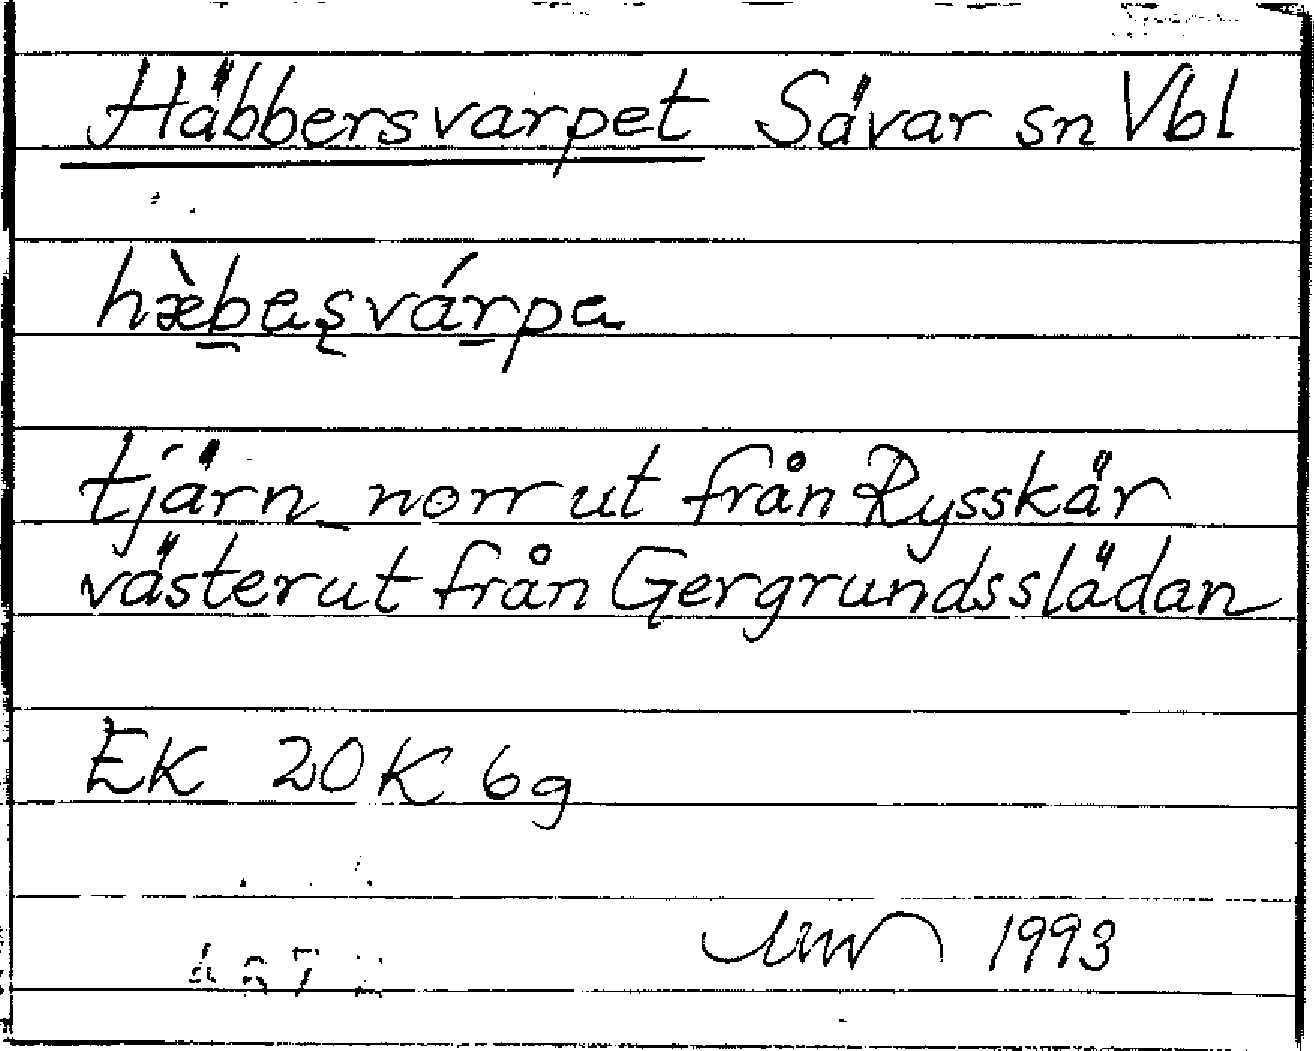 Häbbersvarpet Sävar sn Vbl
hæ̀b̲ɐʂvár̲pɐ
tjärn norrut från Rysskär
västerut från Gergrundsslädan
EK 20K 6g
1993